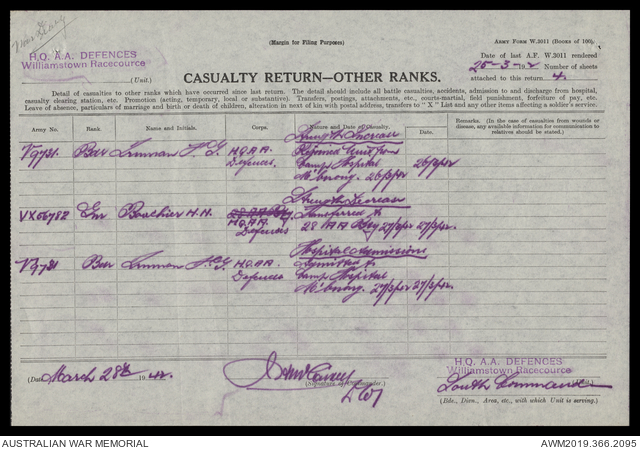 H.Q. A.A. DEFENCES
Williamstown Racecourse
(Unit.)
(Margin for Filing Purposes)
ARMY FORM W.3011 (BOOKS OF 100).
Date of last A.F. W.3011 rendered
25-3-1942 Number of sheets
attached to this return 4.
CASUALTY RETURN—OTHER RANKS.
Detail of casualties to other ranks which have occurred since last return. The detail should include all battle casualties, accidents, admission to and discharge from hospital,
casualty clearing station, etc. Promotion (acting, temporary, local or substantive). Transfers, postings, attachments, etc., courts-martial, field punishment, forfeiture of pay, etc.
Leave of absence, particulars of marriage and birth or death of children, alteration in next of kin with postal address, transfers to "X" List and any other items affecting a soldier's service.
Army No. Rank. Name and Initials. Corps. Nature and Date of Casualty. Date of Casualty. Remarks. (In the case of casualties from wounds or disease, any available information for communication to relatives should be stated.)
Strength Increase
V9731. Bdr H.Q.A.A. Rejoined Unit from
Defences Camp Hospital
M'bnong. 26/3/42 26/3/42
Strength Decrease
VX56782 Gnr Boachier H.H. 28 AA Bty Transferred to
H.Q.A.A. 28 AA Bty 27/3/42 27/3/42.
Defences
Hospital Admissions
V9731 Bdr H.Q.AA. Admitted to
Defences Camp Hospital
M'bnong. 27/3/42 27/3/42.
(Date) March 28th 1942.
(Signature of Commander.)
H.Q. A.A. DEFENCES
Williamstown Racecourse
South Command
(Bde., Divn., Area, etc., with which Unit is serving.)
AUSTRALIAN WAR MEMORIAL AWM2019.366.2095